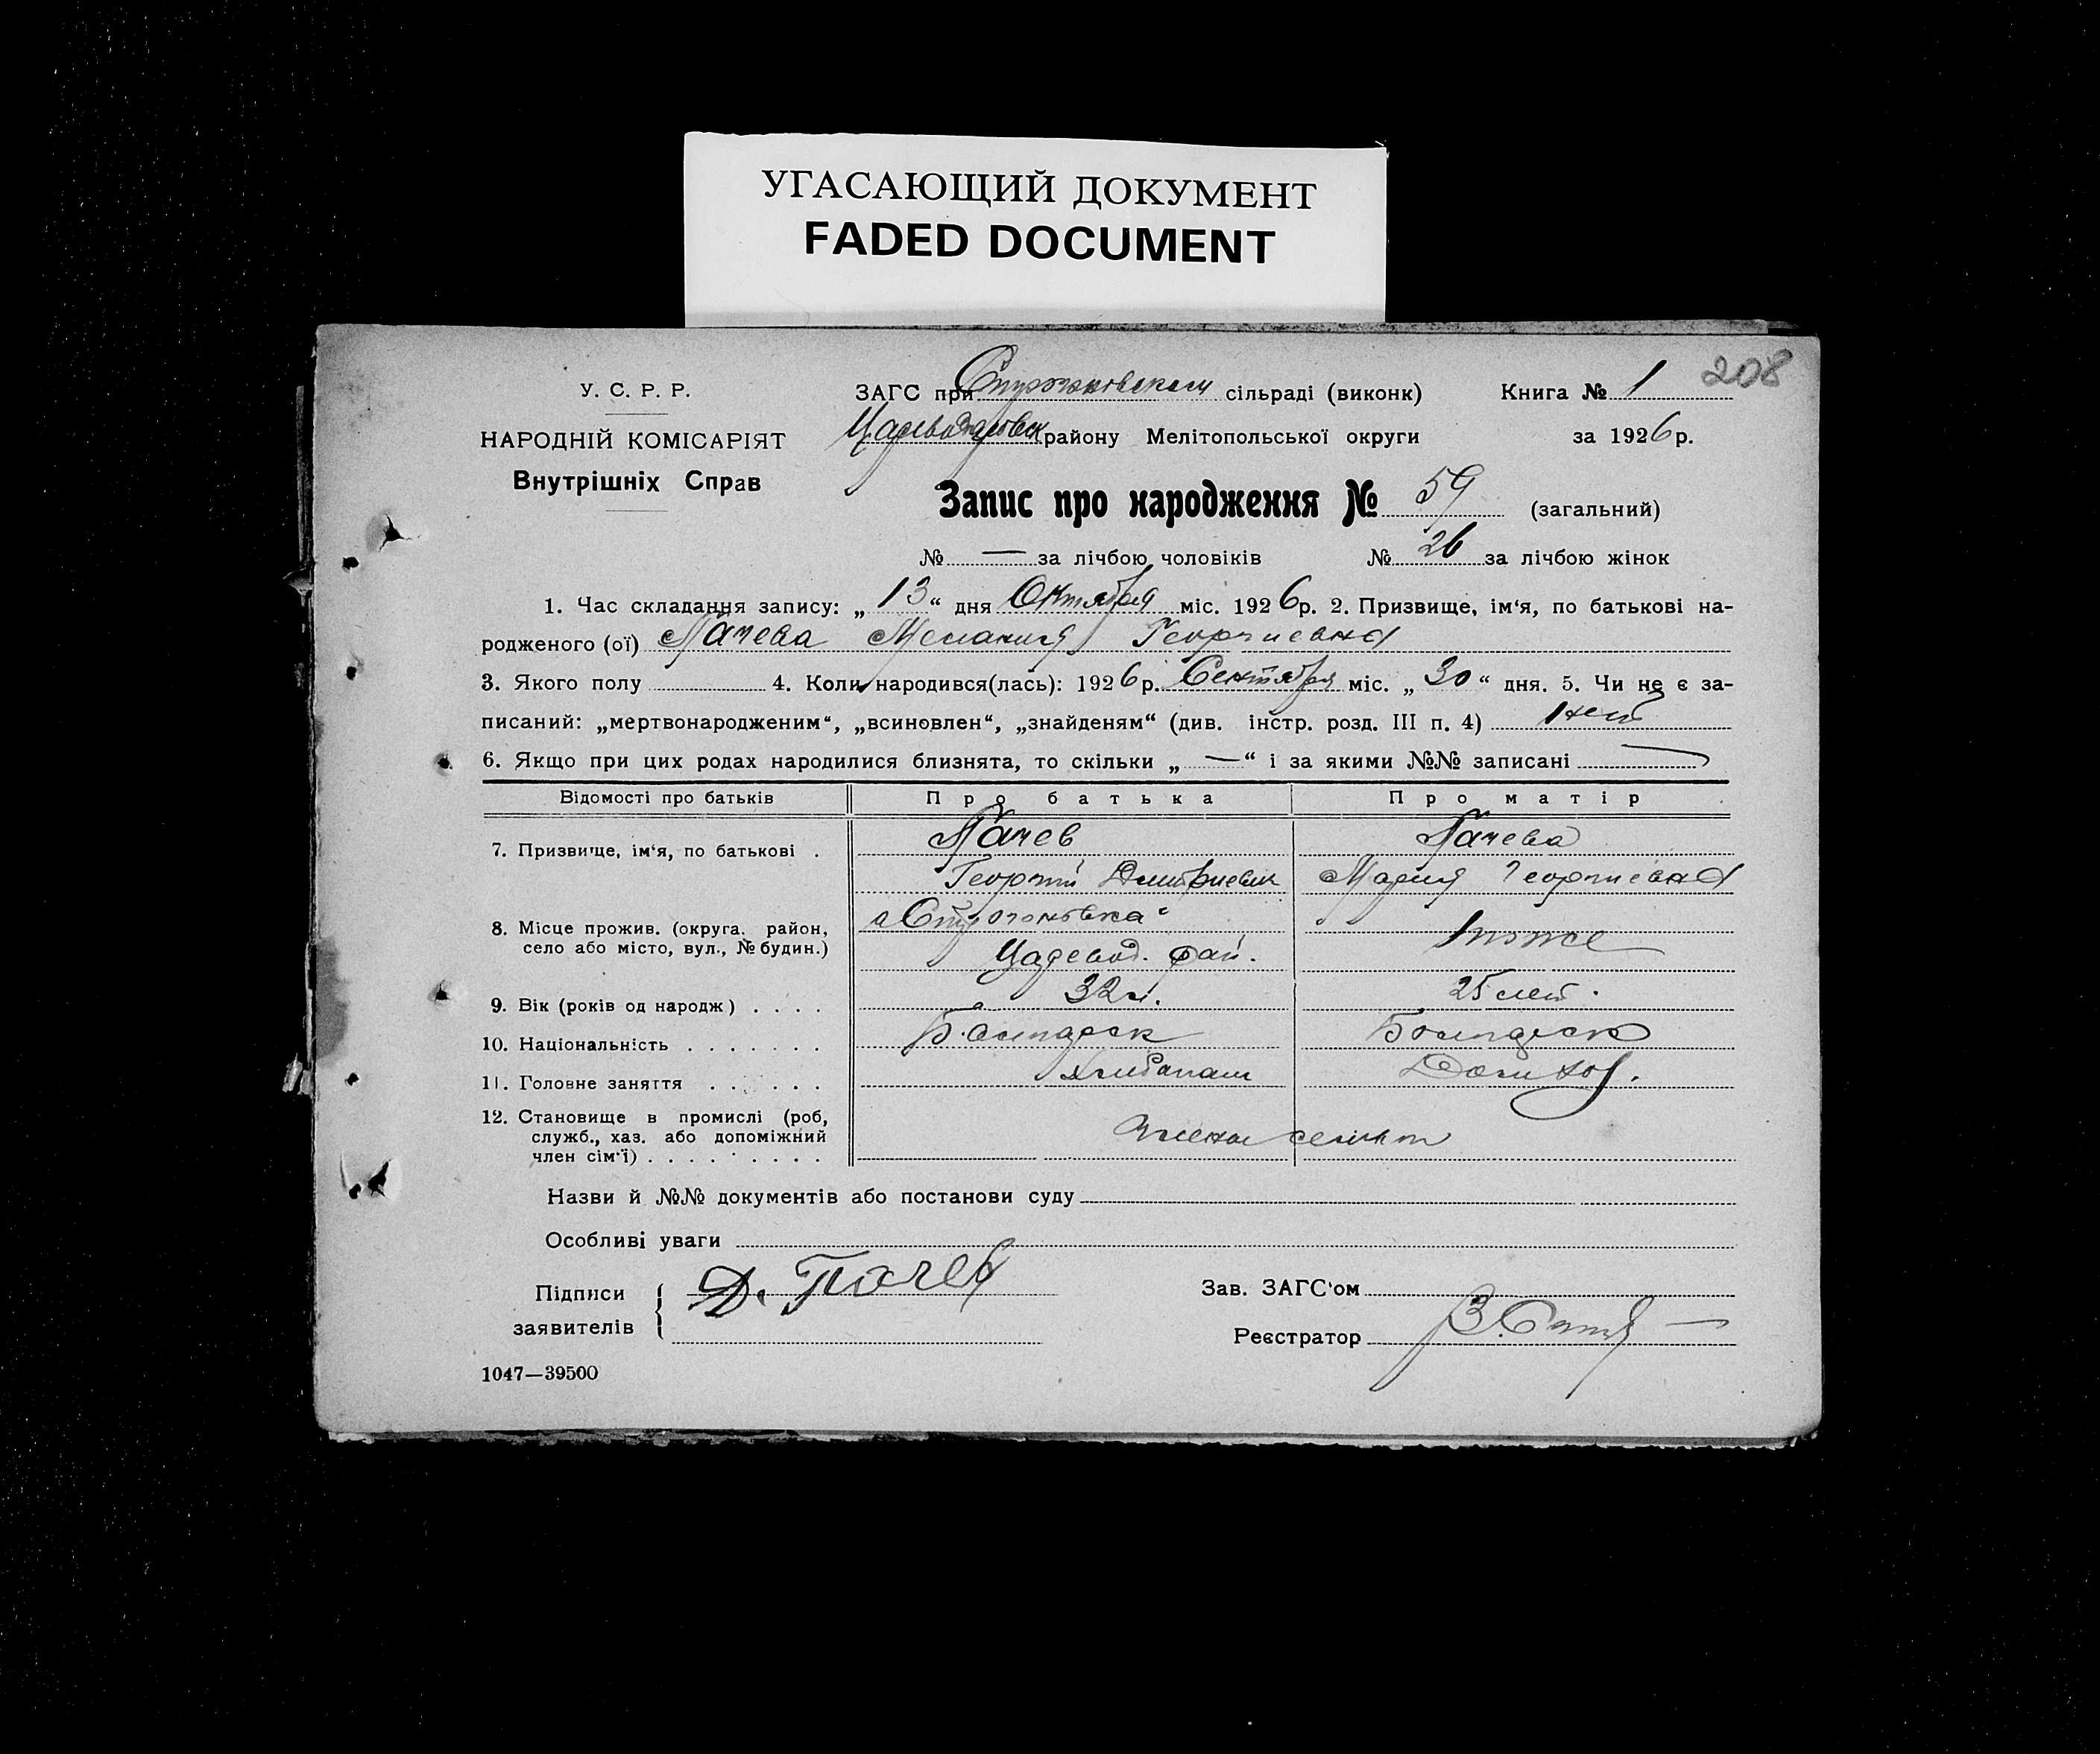 УГАСАЮЩИЙ ДОКУМЕНТ
FADED DOCUMENT
208
У. С. Р. Р.
НАРОДНІЙ КОМІСАРІЯТ
Внутрішніх Справ
ЗАГС при Строгановском сільраді (виконк) Книга № 1
Цареводаровск району Мелітопольської округи за 1926 р.
Запис про народження № 59 (загальний)
№ — за лічбою чоловіків № 26 за лічбою жінок
1. Час складання запису: „ 13 “ дня Октября міс. 1926 р. 2. Призвище, ім‘я, по батькові на-
родженого (ої) Пачева Мелания Георгиевна
3. Якого полу 4. Коли народився(лась): 1926 р. Сентября міс. „ 30 “ дня. 5. Чи не є за-
писаний: „мертвонародженим“, „всиновлен“, „знайденям“ (див. інстр. розд. III п. 4) нет
6. Якщо при цих родах народилися близнята, то скільки „ — “ і за якими №№ записані —
Відомості про батьків Про батька Про матір
7. Призвище, ім‘я, по батькові . Пачев Пачева
Георгий Дмитриевич Мария Георгиевна
8. Місце прожив. (округа. район, село або місто, вул., № будин.) „Строгоновка“ тоже
Царевод. рай.
9. Вік (років од народж) . . . . 32 л. 25 лет.
10. Національність . . . . . . . Болгарск Болгарск
11. Головне заняття . . . . . . Хлебопаш Домхоз.
12. Становище в промислі (роб, служб., хаз. або допоміжний член сім‘ї) . . . . . . . . . члены семьи
Назви й №№ документів або постанови суду
Особливі уваги
Підписи заявителів Д. Пачев
Зав. ЗАГС‘ом
Реєстратор
1047—39500